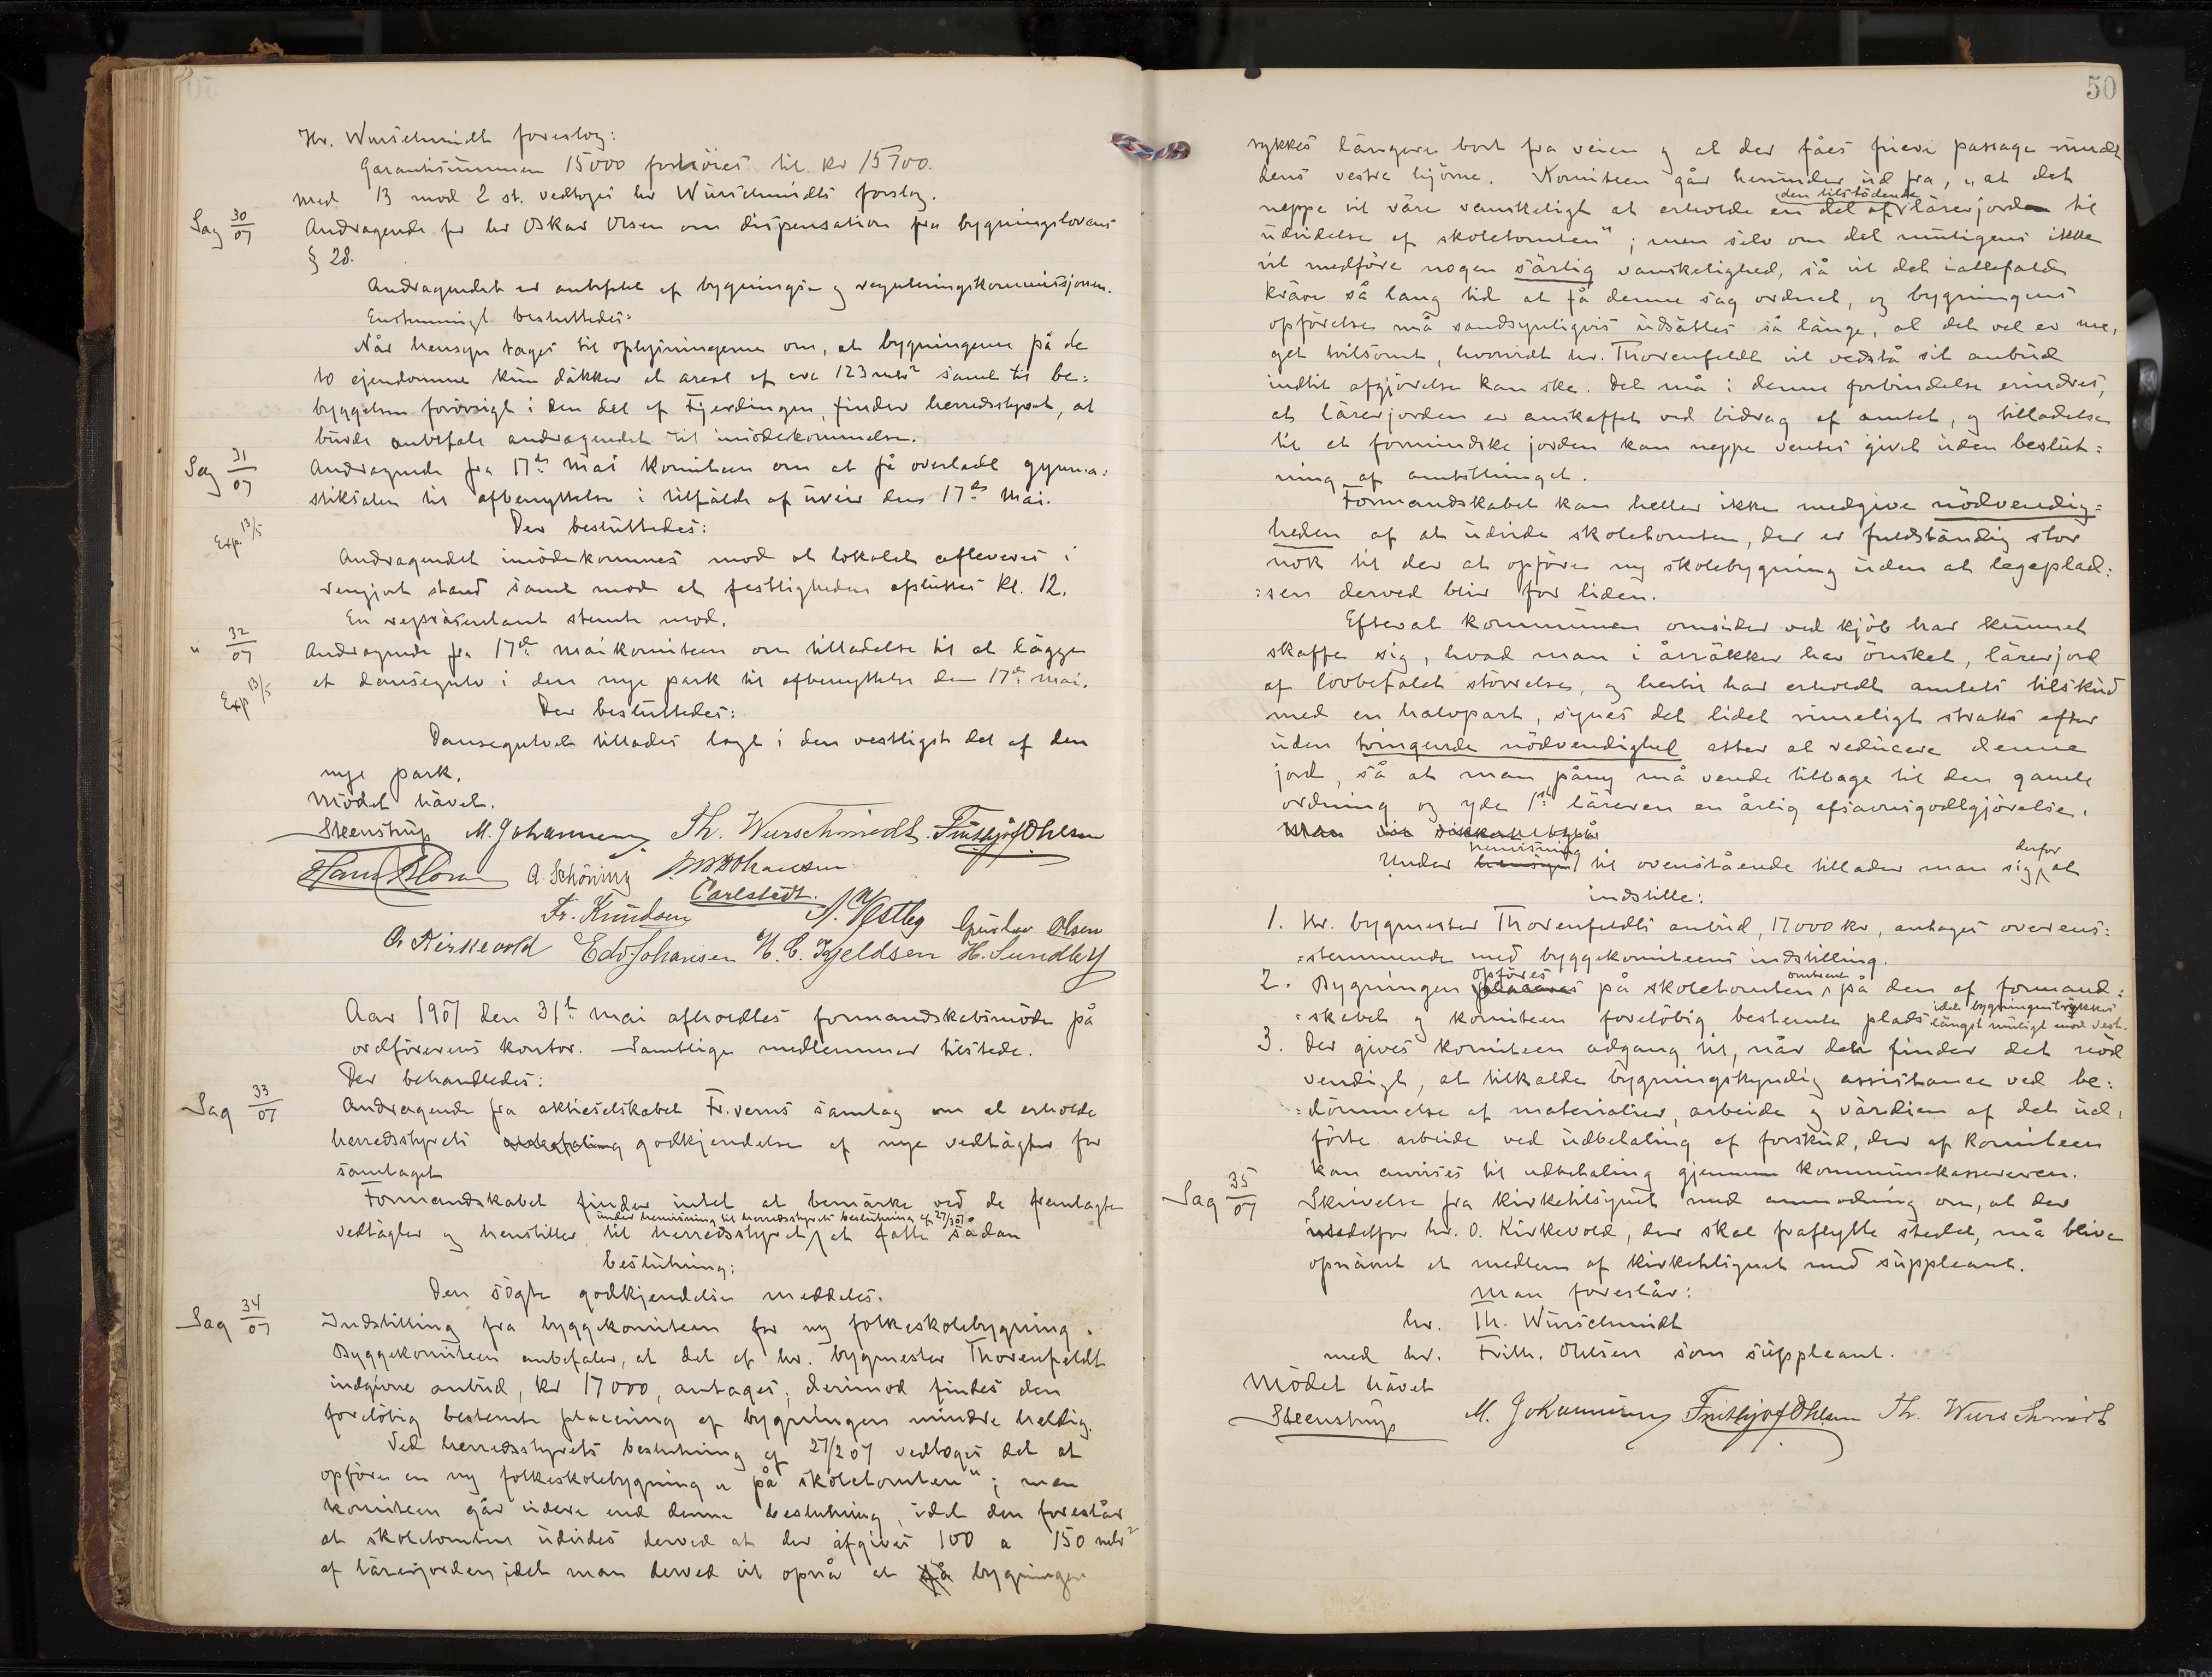 Hr. Wurschmidt foreslog:
Garantisummen 15000 forhöies til kr 15700.
Med 13 mod 2 st. vedtoges hr Wurschmidts forslag.
Sag 30/07 Andragende fra hr Oskar Olsen om dispensation fra bygningslovens
§ 28.
Andragendet er anbefalt af bygnings- og reguleringskommissjonen.
Enstemmigt besluttedes:
Når hensyn tages til oplysningerne om, at bygningerne på de
to ejendomme kun däkker et areal af cra 123 mtr² samt til be=
byggelsen forövrigt i den del af Fjerdingen, finder herredsstyret, at
burde anbefale andragendet til imödekommelse.
Sag 31/07 Andragende fra 17de Mai komiteen om at få overladt gymna=
stiksalen til afbenyttelse i tilfälde af uveir den 17de Mai.
Exp. 13/5
Der besluttedes:
Andragendet imödekommes mod at lokalet afleveres i
rengjort stand samt mod at festligheden afsluttes kl. 12.
En repräsentant stemte mod.
" 32/07 Andragende fra 17de maikomiteen om tilladelse til at lägge
et dansegulv i den nye park til afbenyttelse den 17de mai.
Exp 13/5
Der besluttedes:
Dansegulvet tillades lagt i den vestligste del af den
nye park.
Mödet hävet.
Steenstrup M. Johannesen Th. Wurschmidt. Frithjof Ohlsen
Hans A. Schöning Johansen
Carlstedt.
Fr. Knudsen Vestby Gustav Olsen
O. Kirkevold Edv Johansen N. C. Kjeldsen H. Sundby
Aar 1907 den 31te mai afholdtes formandskabsmöde på
ordförerens kontor. Samtlige medlemmer tilstede.
Der behandledes:
Sag 33/07 Andragende fra aktieselskabet Fr.verns samlag om at erholde
herredsstyrets anbefaling godkjendelse af nye vedtägter for
samlaget
Formandskabet finder intet at bemärke ved de fremlagte
under henvisning til herredsstyrets beslutning af 27/3 07
vedtägter og henstiller til herredsstyret at fatte sådan
beslutning:
Den sögte godkjendelse meddeles.
Sag 34/07 Indstilling fra byggekomiteen for ny folkeskolebygning.
Byggekomiteen anbefaler, at det af hr. bygmester Thorenfeldt
indgivne anbud, kr 17000, antages; derimod findes den
forelöbig bestemte placering af bygningen mindre heldig.
Ved herredsstyrets beslutning af 27/2 07 vedtoges det at
opföre en ny folkeskolebygning „på skoletomten"; men
komiteen går videre end denne beslutning, idet den foreslår
at skoletomten udvides derved at der afgives 100 a 150 mtr²
af lärerjorden, idet man derved vil opnå at få bygningen
50
rykkes längere bort fra veien og at der fåes friere passage rundt
dens vestre hjörne. Komiteen går herunder ud fra, „at det
den tilstödende
neppe vil väre vanskeligt at erholde en del af lärerjorden til
udvidelse af skoletomten"; men selv om det muligens ikke
vil medföre nogen särlig vanskelighed, så vil det iallefald
kräve så lang tid at få denne sag ordnet, og bygningens
opförelse må sandsynligvis udsättes så länge, at det vel er me,
get tvilsomt, hvorvidt hr. Thorenfeldt vil vedstå sit anbud
indtil afgjörelse kan ske. Det må i denne forbindelse erindres,
at lärerjorden er anskaffet ved bidrag af amtet, og tilladelse
til at formindske jorden kan neppe ventes givet uden beslut=
ning af amtsthinget.
Formandskabet kan heller ikke medgive nödvendig=
heden af at udvide skoletomten, der er fuldständig stor
nok til der at opföre ny skolebygning uden at legeplad=
=sen derved blir for liden.
Efterat kommunen omsider ved kjöb har kunnet
skaffe sig, hvad man i årräkker har önsket, lärerjord
af lovbefalet störrelse, og hertil har erholdt amtets tilskud
med en halvpart, synes det lidet rimeligt straks efter
uden tvingende nödvendighed atter at reducere denne
jord, så at man påny må vende tilbage til den gamle
ordning og yde 1ste läreren en årlig afsavnsgodtgjörelse.
Man vil
henvisning derfor
Under hensyn til ovenstående tillader man sig at
indstille:
1. Hr. bygmester Thorenfeldts anbud, 17000 kr, antages overens=
=stemmende med byggekomiteens indstilling.
opföres omtrent
2. Bygningen placeres på skoletomten på den af formand=
=skabet og komiteen forelöbig bestemte plads idet bygningen rykkes
längst muligt mod vest.
3. Der gives komiteen adgang til, når den finder det nöd
vendigt, at tilkalde bygningskyndig assistance ved be=
=dömmelse af materialier, arbeide og värdien af det ud,
förte arbeide ved udbetaling af forskud, der af komiteen
kan anvises til udbetaling gjennem kommunekassereren.
Sag 35/07 Skrivelse fra kirketilsynet med anmodning om, at der
istedetfor hr. O. Kirkevold, der skal fraflytte stedet, må blive
opnävnt et medlem af kirketilsynet med suppleant.
Man foreslår:
hr. Th. Wurschmidt
med hr. Frith. Ohlsen som suppleant.
Mödet hävet
Steenstrup M. Johannesen Frithjof Ohlsen Th. Wurschmidt